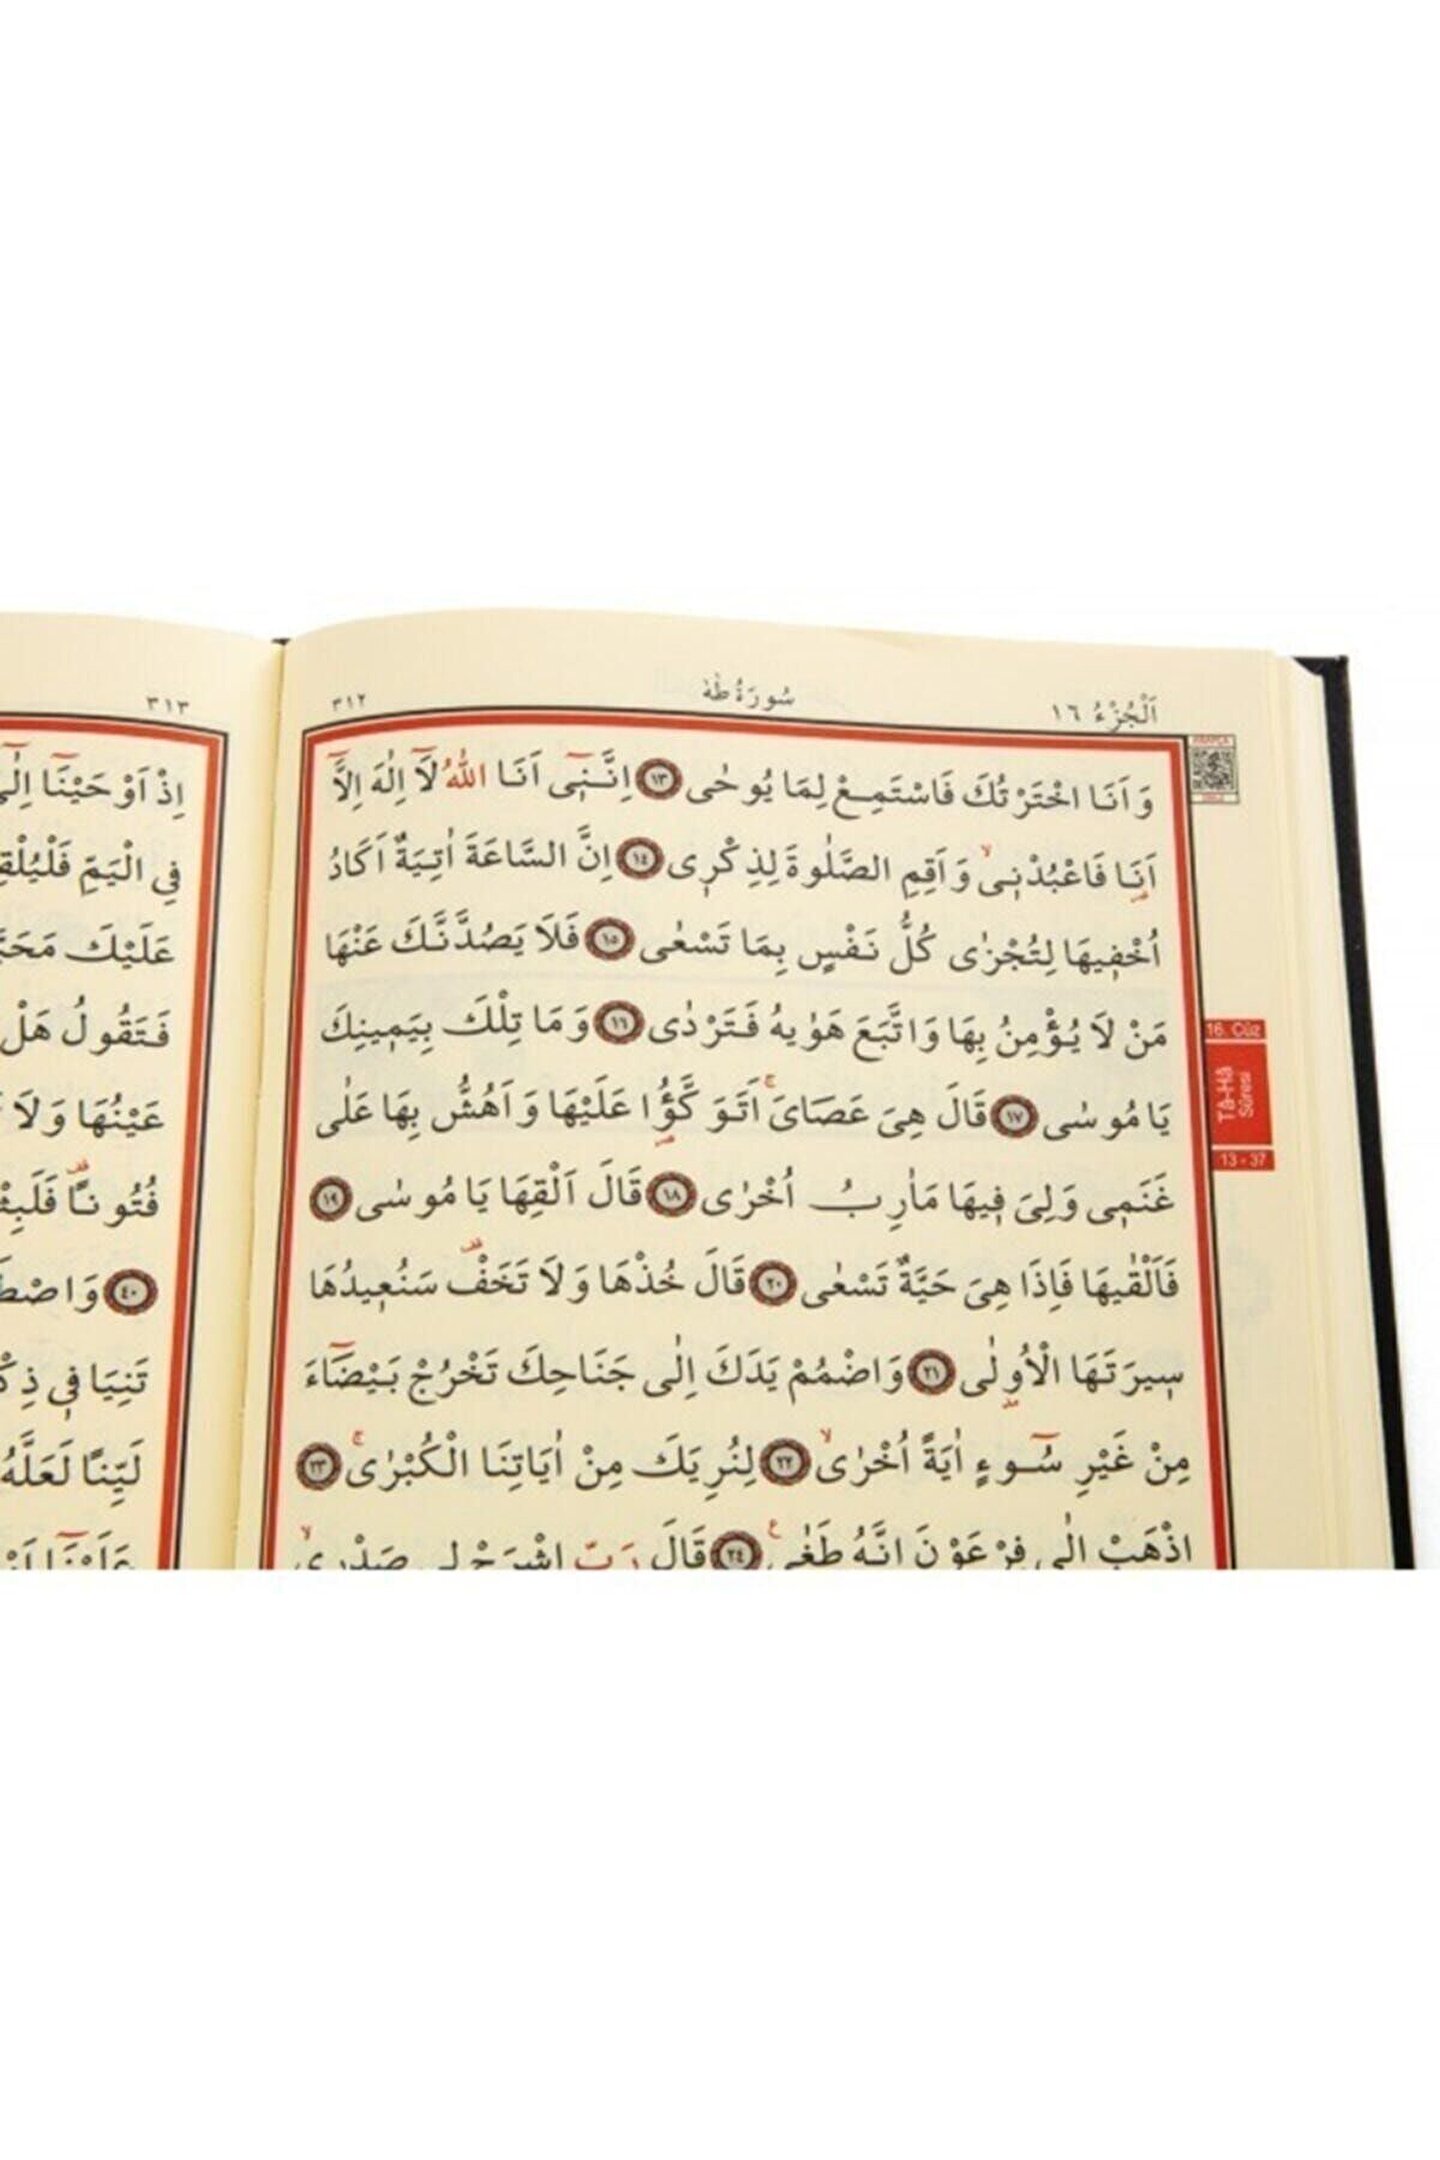 اَلْجُزْءُ ١٦
سُورَةُ طٰهٰ
٣١٢
وَاَنَا اخْتَرْتُكَ فَاسْتَمِعْ لِمَا يُوحٰى ١٣ اِنَّنٖٓى اَنَا اللّٰهُ لَٓا اِلٰهَ اِلَّٓا
اَنَا۬ فَاعْبُدْنٖىۙ وَاَقِمِ الصَّلٰوةَ لِذِكْرٖى ١٤ اِنَّ السَّاعَةَ اٰتِيَةٌ اَكَادُ
اُخْفٖيهَا لِتُجْزٰى كُلُّ نَفْسٍ بِمَا تَسْعٰى ١٥ فَلَا يَصُدَّنَّكَ عَنْهَا
مَنْ لَا يُؤْمِنُ بِهَا وَاتَّبَعَ هَوٰيهُ فَتَرْدٰى ١٦ وَمَا تِلْكَ بِيَمٖينِكَ
يَا مُوسٰى ١٧ قَالَ هِىَ عَصَاىَۚ اَتَوَكَّؤُ۬ا عَلَيْهَا وَاَهُشُّ بِهَا عَلٰى
غَنَمٖى وَلِىَ فٖيهَا مَاٰرِبُ اُخْرٰى ١٨ قَالَ اَلْقِهَا يَا مُوسٰى ١٩
فَاَلْقٰيهَا فَاِذَا هِىَ حَيَّةٌ تَسْعٰى ٢٠ قَالَ خُذْهَا وَلَا تَخَفْ۠ سَنُعٖيدُهَا
سٖيرَتَهَا الْاُو۫لٰى ٢١ وَاضْمُمْ يَدَكَ اِلٰى جَنَاحِكَ تَخْرُجْ بَيْضَٓاءَ
مِنْ غَيْرِ سُٓوءٍ اٰيَةً اُخْرٰىۙ ٢٢ لِنُرِيَكَ مِنْ اٰيَاتِنَا الْكُبْرٰىۚ ٢٣
اِذْهَبْ اِلٰى فِرْعَوْنَ اِنَّهُ طَغٰىࣖ ٢٤ قَالَ رَبِّ اشْرَحْ لٖى صَدْرٖىۙ
16. Cüz
Tâ-Hâ
Sûresi
13 - 37
٣١٣
اِذْ اَوْحَيْنَٓا اِلٰٓى
فِى الْيَمِّ فَلْيُلْقِ
عَلَيْكَ
فَتَقُولُ هَلْ
عَيْنُهَا وَلَا
فُتُونًا۠ فَلَبِثْ
٤٠ وَاصْطَ
تَنِيَا فٖى ذِكْ
لَيِّنًا لَعَلَّهُ
عَلَيْنَٓا